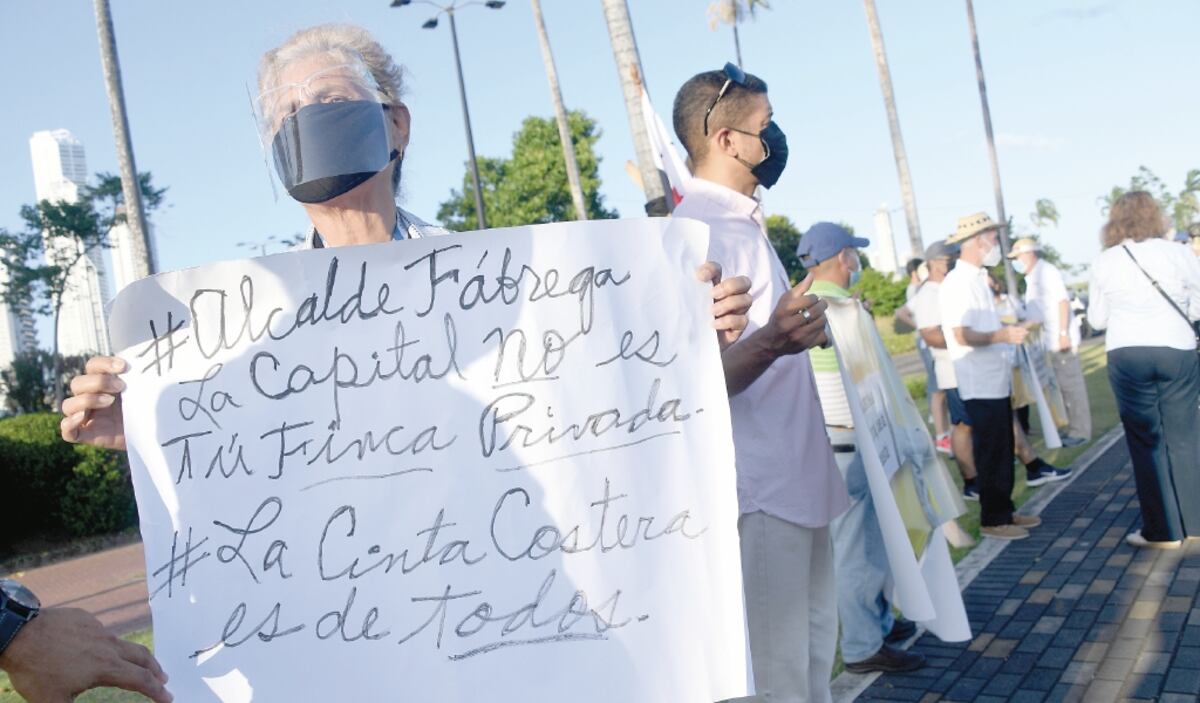 #Alcalde Fábrega
La Capital No es
TÚ Finca Privada.
#La Cinta Costera
es de Todos.